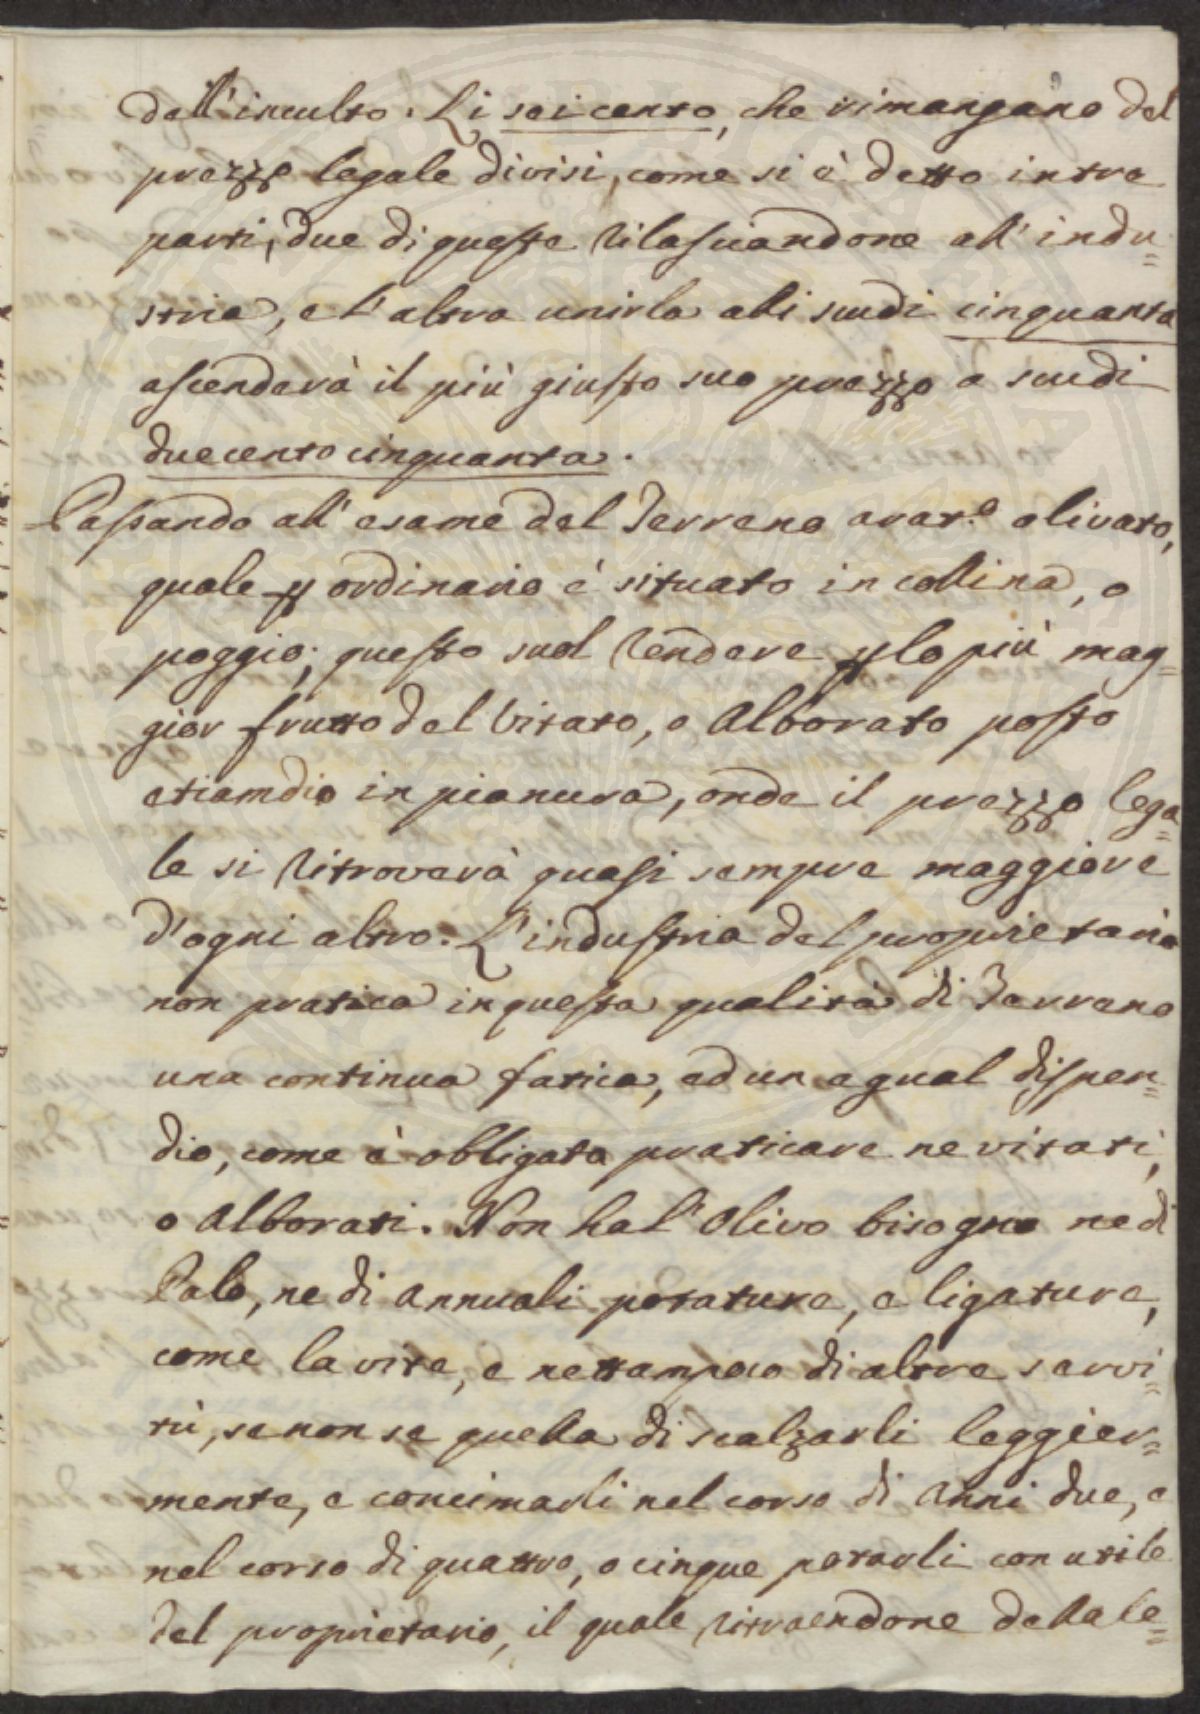 dell'inculto. Li seicento, che rimangano del
prezzo legale divisi, come si è detto in tre
parti, due di queste rilasciandone all'indu=
stria, e l'altra unirla alli scudi cinquanta
ascenderà il più giusto suo prezzo a scudi
duecento cinquanta.
Passando all'esame del Terreno arat.o olivato,
quale p ordinario è situato in collina, o
poggio; questo suol rendere p lo più mag=
gior frutto del Vitato, o Alborato posto
etiamdio in pianura, onde il prezzo lega=
le si ritroverà quasi sempre maggiore
d'ogni altro. L'industria del proprietario
non pratica in questa qualità di Terreno
una continua fatica, ed un egual dispen=
dio, come è obligata praticare ne vitati,
o Alborati. Non ha l'Olivo bisogno ne di
Palo, ne di annuali potature, e ligature,
come la vite, e nettampoco di altre servi=
tù, se non se quella di scalzarli leggier=
mente, e concimarli nel corso di Anni due, e
nel corso di quattro, o cinque potarli con utile
del proprietario, il quale ritraendone dalla le=